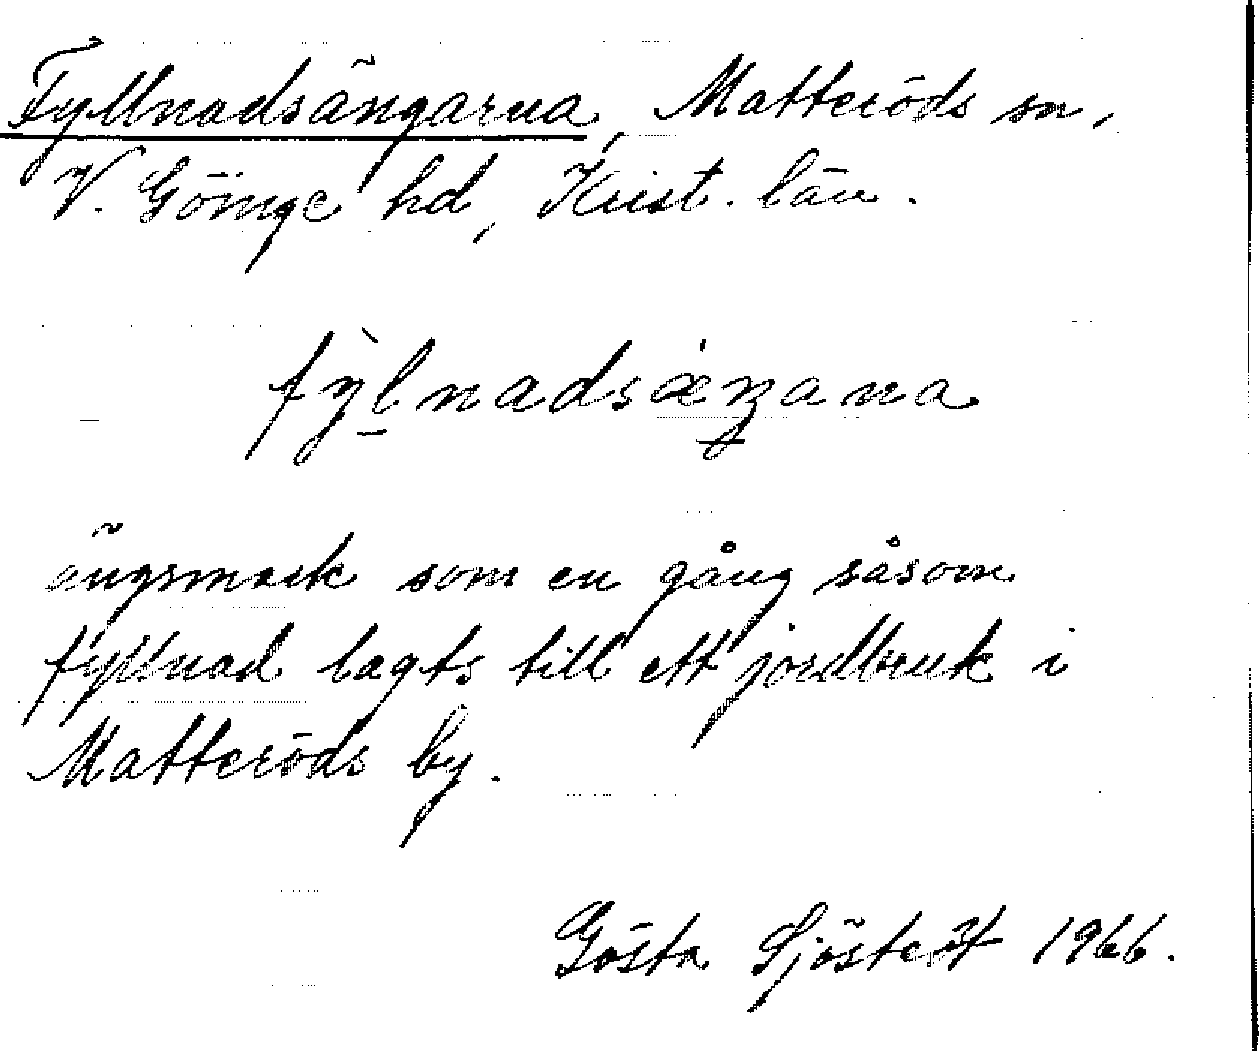 Fyllnadsängarna, Matteröds sn,
V. Göinge hd, Krist. län.
fỳl̲nadsæŋana
ängsmark som en gång såsom
fyllnad lagts till ett jordbruk i
Matteröds by.
Gösta Sjöstedt 1966.